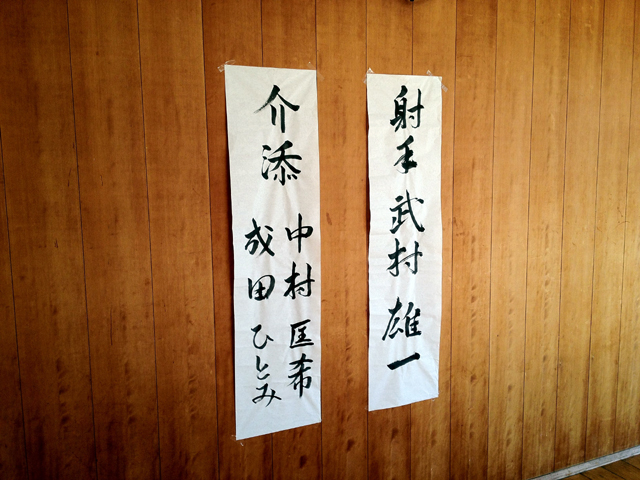 射手 武村 雄一
介添
中村 匡希
成田 ひとみ